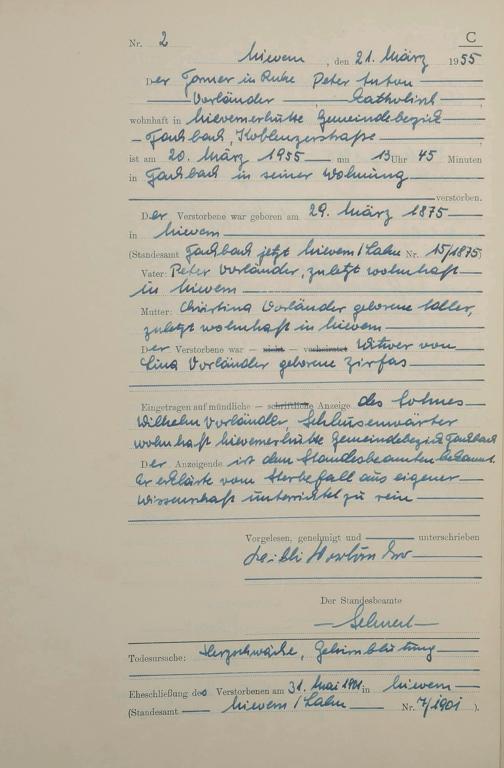 Nr. 2 C
Nievern, den 21. März 1955
Der Former in Ruhe Peter Anton
Vorländer, Katholisch
wohnhaft in Nievernerhütte Gemeindebezirk
Fachbach, Koblenzerstraße
ist am 20. März 1955 um 13 Uhr 45 Minuten
in Fachbach in seiner Wohnung
verstorben.
Der Verstorbene war geboren am 29. März 1875
in Nievern
(Standesamt Fachbach jetzt Nievern/Lahn Nr. 15/1875)
Vater: Peter Vorländer, zuletzt wohnhaft
in Nievern
Mutter: Christina Vorländer geborene Adler,
zuletzt wohnhaft in Nievern
Der Verstorbene war – nicht – verheiratet Witwer von
Lina Vorländer geborene Zirfas
Eingetragen auf mündliche – schriftliche Anzeige des Sohnes
Wilhelm Vorländer, Schleusenwärter
wohnhaft Nievernerhütte Gemeindebezirk Fachbach
Der Anzeigende ist dem Standesbeamten bekannt.
Er erklärte vom Sterbefall aus eigener
Wissenschaft unterrichtet zu sein
Vorgelesen, genehmigt und unterschrieben
Der Standesbeamte
Todesursache: Herzschwäche, Gehirnblutung
Eheschließung des Verstorbenen am 31. Mai 1901 in Nievern
(Standesamt Nievern/Lahn Nr. 7/1901 ).